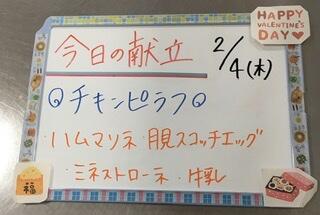 HAPPY
VALENTINE'S
DAY
今日の献立
2/4(木)
チキンピラフ
・ハムマリネ・月見スコッチエッグ
・ミネストローネ ・牛乳
福